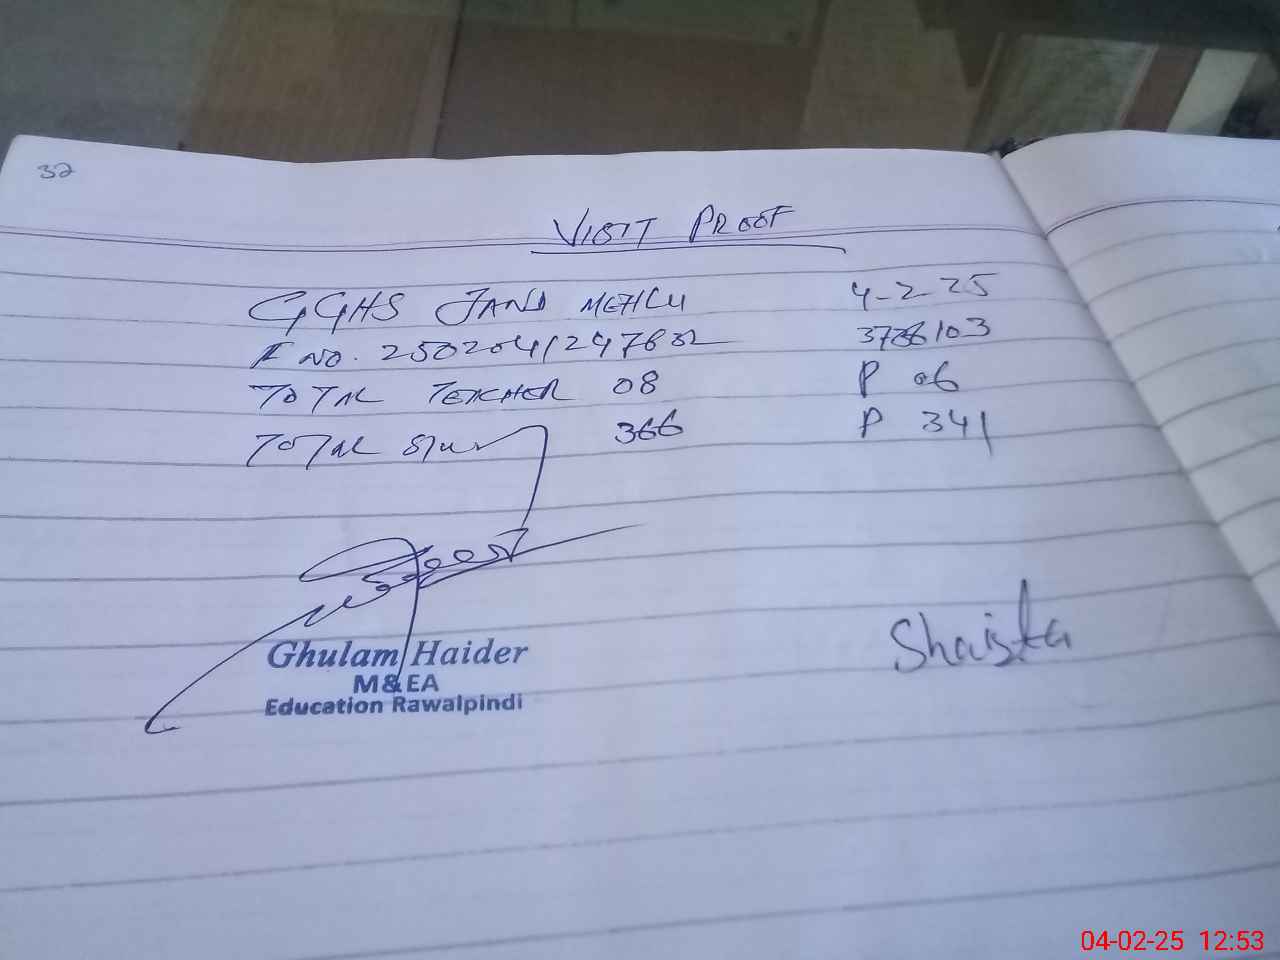 32
VISIT PROOF
GGHS JAND MEHLU 4-2-25
F NO. 250204/247632 3736103
TOTAL TEACHER 08 P 06
TOTAL STU 366 P 341
Ghulam Haider
M&EA
Education Rawalpindi
Shaista
04-02-25 12:53